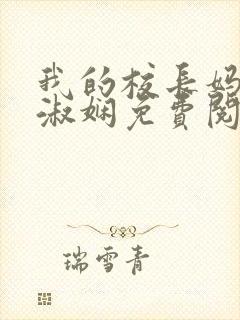 我的校长妈
淑娴免费阅
瑞雪青